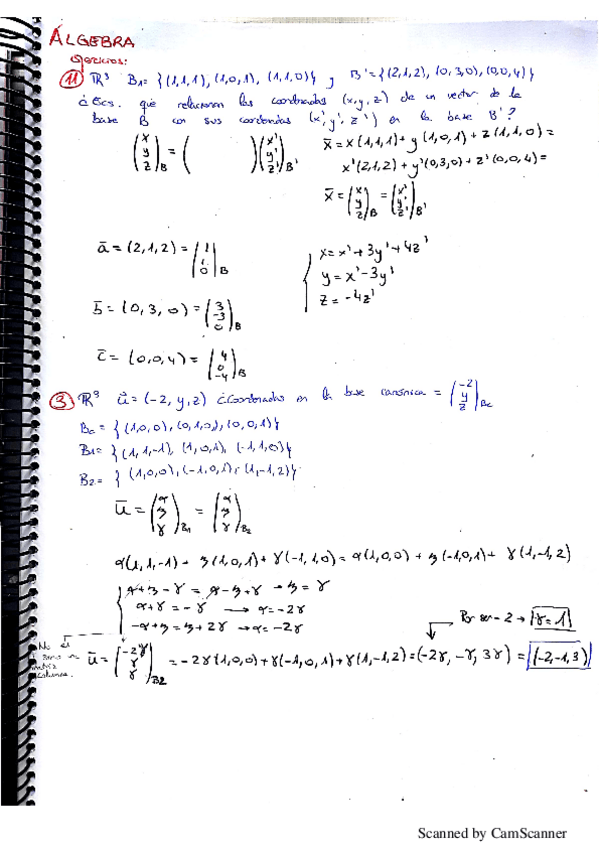 ÁLGEBRA
ejercicios:
11 R³ B₁= {(1,1,1), (1,0,1), (1,1,0)} y B'={(2,1,2), (0,3,0), (0,0,4)}
¿Ecs. que relacionan las coordenadas (x,y,z) de un vector de la
base B con sus coordenadas (x',y',z') en la base B'?
(x y z)B = ( ) (x' y' z')B'
x̄ = x(1,1,1)+ y(1,0,1)+ z(1,1,0)=
x'(2,1,2)+ y'(0,3,0)+ z'(0,0,4)=
x̄ = (x y z)B = (x' y' z')B'
ā = (2,1,2) = (1 1 0)B
x= x'+3y'+4z'
y= x'-3y'
z= -4z'
b̄ = (0,3,0) = (3 -3 0)B
c̄ = (0,0,4) = (4 0 -4)B
3 R³ ū = (-2, y, z) ¿Coordenadas en la base canónica = (-2 y z)Bc
Bc = {(1,0,0), (0,1,0), (0,0,1)}
B1= {(1,1,-1), (1,0,1), (-1,1,0)}
B2= {(1,0,0), (-1,0,1), (1,-1,2)}
ū = (α β γ)B1 = (α β γ)B2
α(1,1,-1)+ β(1,0,1)+ γ(-1,1,0)= α(1,0,0)+ β(-1,0,1)+ γ(1,-1,2)
α+β-γ = α-β+γ → β=γ
α+γ=-γ → α=-2γ
-α+β=β+2γ → α=-2γ
Por ser -2 → γ=1
No es
matriz
columna.
ū = (-2γ γ γ)B2 = -2γ(1,0,0)+γ(-1,0,1)+γ(1,-1,2)=(-2γ,-γ,3γ) = (-2,-1,3)
Scanned by CamScanner